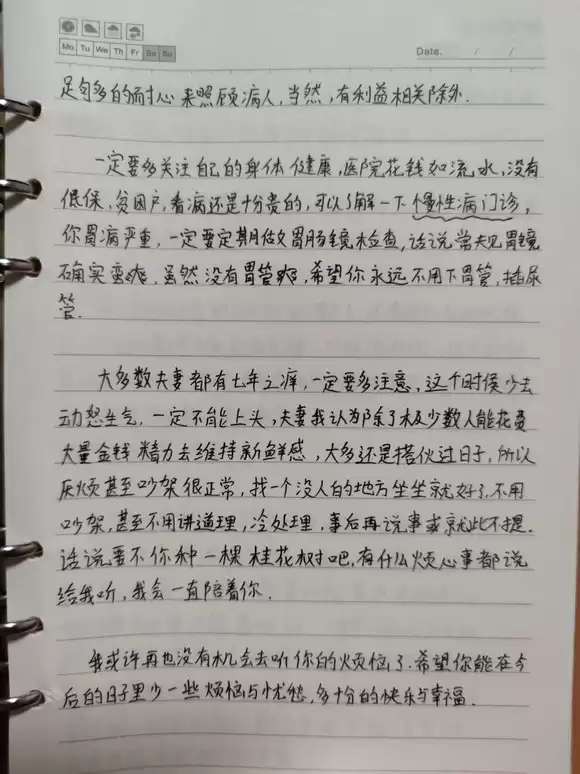 Mo Tu We Th Fr Sa Su
Date. / /
足够多的耐心来照顾病人,当然,有利益相关除外.
一定要多关注自己的身体健康,医院花钱如流水,没有
低保、贫困户,看病还是十分贵的,可以了解一下慢性病门诊,
你胃病严重,一定要定期做胃肠镜检查,话说常规胃镜
确实蛮爽,虽然没有胃管爽,希望你永远不用下胃管,插尿
管.
大多数夫妻都有七年之痒,一定要多注意,这个时候少去
动怒生气,一定不能上头,夫妻我认为除了极少数人能花费
大量金钱精力去维持新鲜感,大多还是搭伙过日子,所以
厌烦甚至吵架很正常,找一个没人的地方坐坐就好了,不用
吵架,甚至不用讲道理,冷处理,事后再说事或就此不提.
话说要不你种一棵桂花树吧,有什么烦心事都说
给我听,我会一直陪着你.
我或许再也没有机会去听你的烦恼了.希望你能在今
后的日子里少一些烦恼与忧愁,多十份的快乐与幸福.